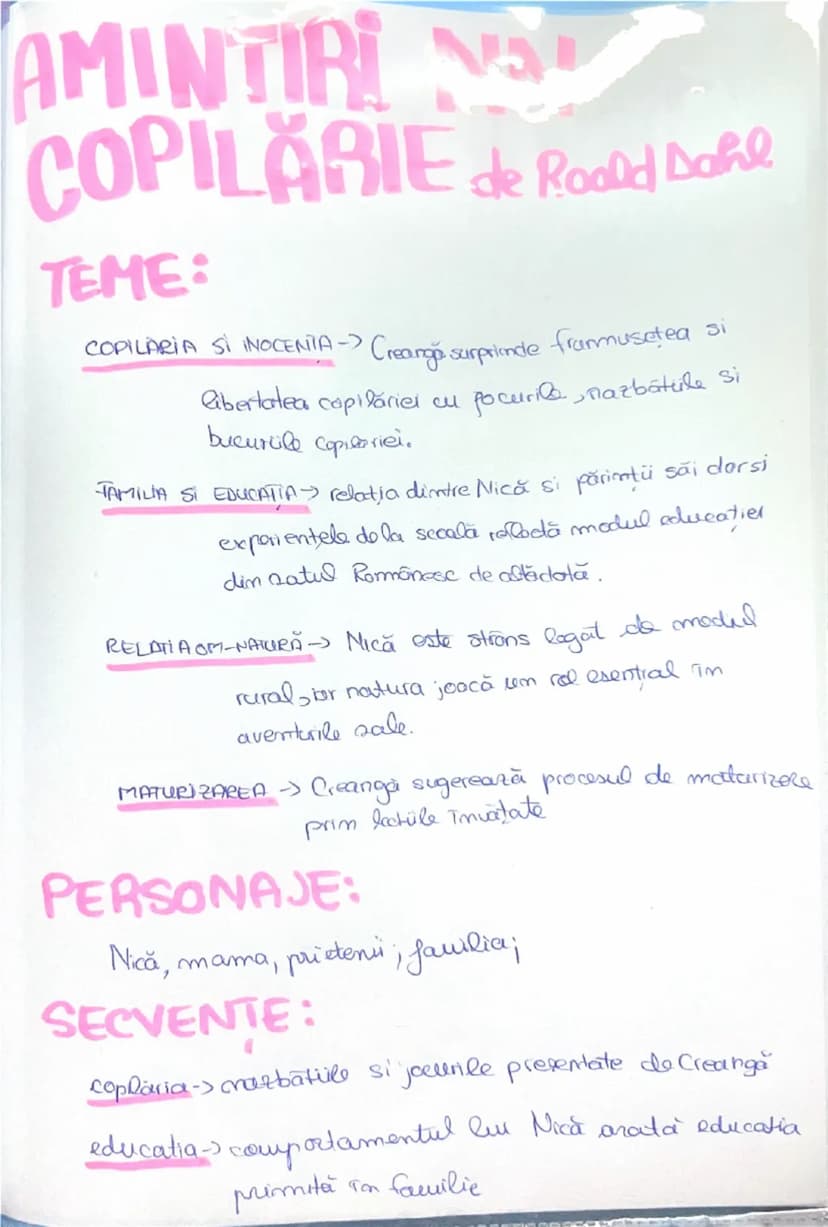 AMINTIRI
COPILĂRIE de Roald Dahl
TEME:
COPILARIA SI INOCENTA -> Creangă surprinde frumusețea si
libertatea copilăriei cu jocurile, nazbâtiile si
bucuriile copilariei.
FAMILIA SI EDUCATIA -> relatia dintre Nică si părinții săi dar si
experiențele de la scoală reflectă modul educatiei
din satul Românesc de altădată.
RELATIA OM-NATURĂ -> Nică este strâns legat de mediul
rural, iar natura joacă un rol esential în
aventurile sale.
MATURIZAREA -> Creangă sugerează procesul de maturizare
prin lectiile învățate
PERSONAJE:
Nică, mama, prietenii, familia;
SECVENȚE:
copilaria -> nazbâtiile si jocurile prezentate de Creangă
educatia -> comportamentul lui Nică arată educatia
primită în familie